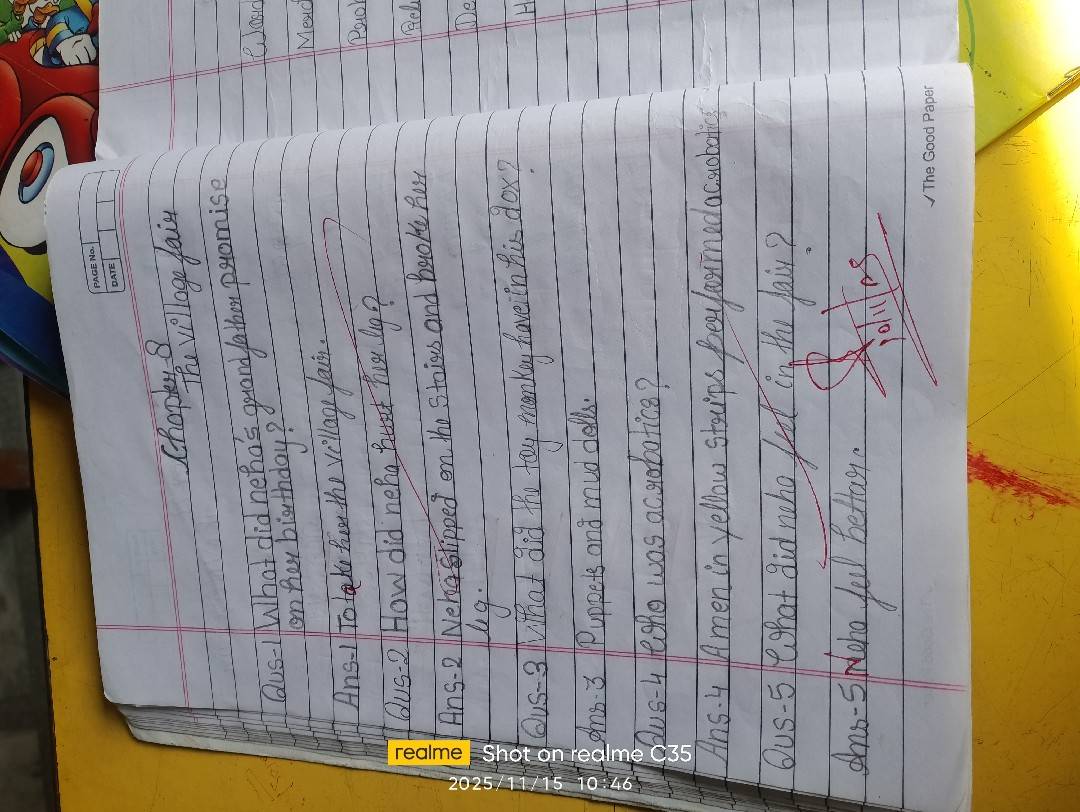 PAGE No.
DATE
Chapter-8
The village fair
Qus-1 What did neha's grandfather promise
on her birthday?
Ans-1 To take her the village fair.
Qus-2 How did neha hurt her leg?
Ans-2 Neha slipped on the stairs and broke her
lig.
Qus-3 What did the toy monkey have in his dox?
Ans-3 Puppets and mud dolls.
Qus-4 Who was acrobatics?
Ans-4 A men in yellow straips preyformed acrobatics
Qus-5 What did neha feel in the fair?
Ans-5 Neha feel bettar.
✓The Good Paper
realme Shot on realme C35
2025/11/15 10:46